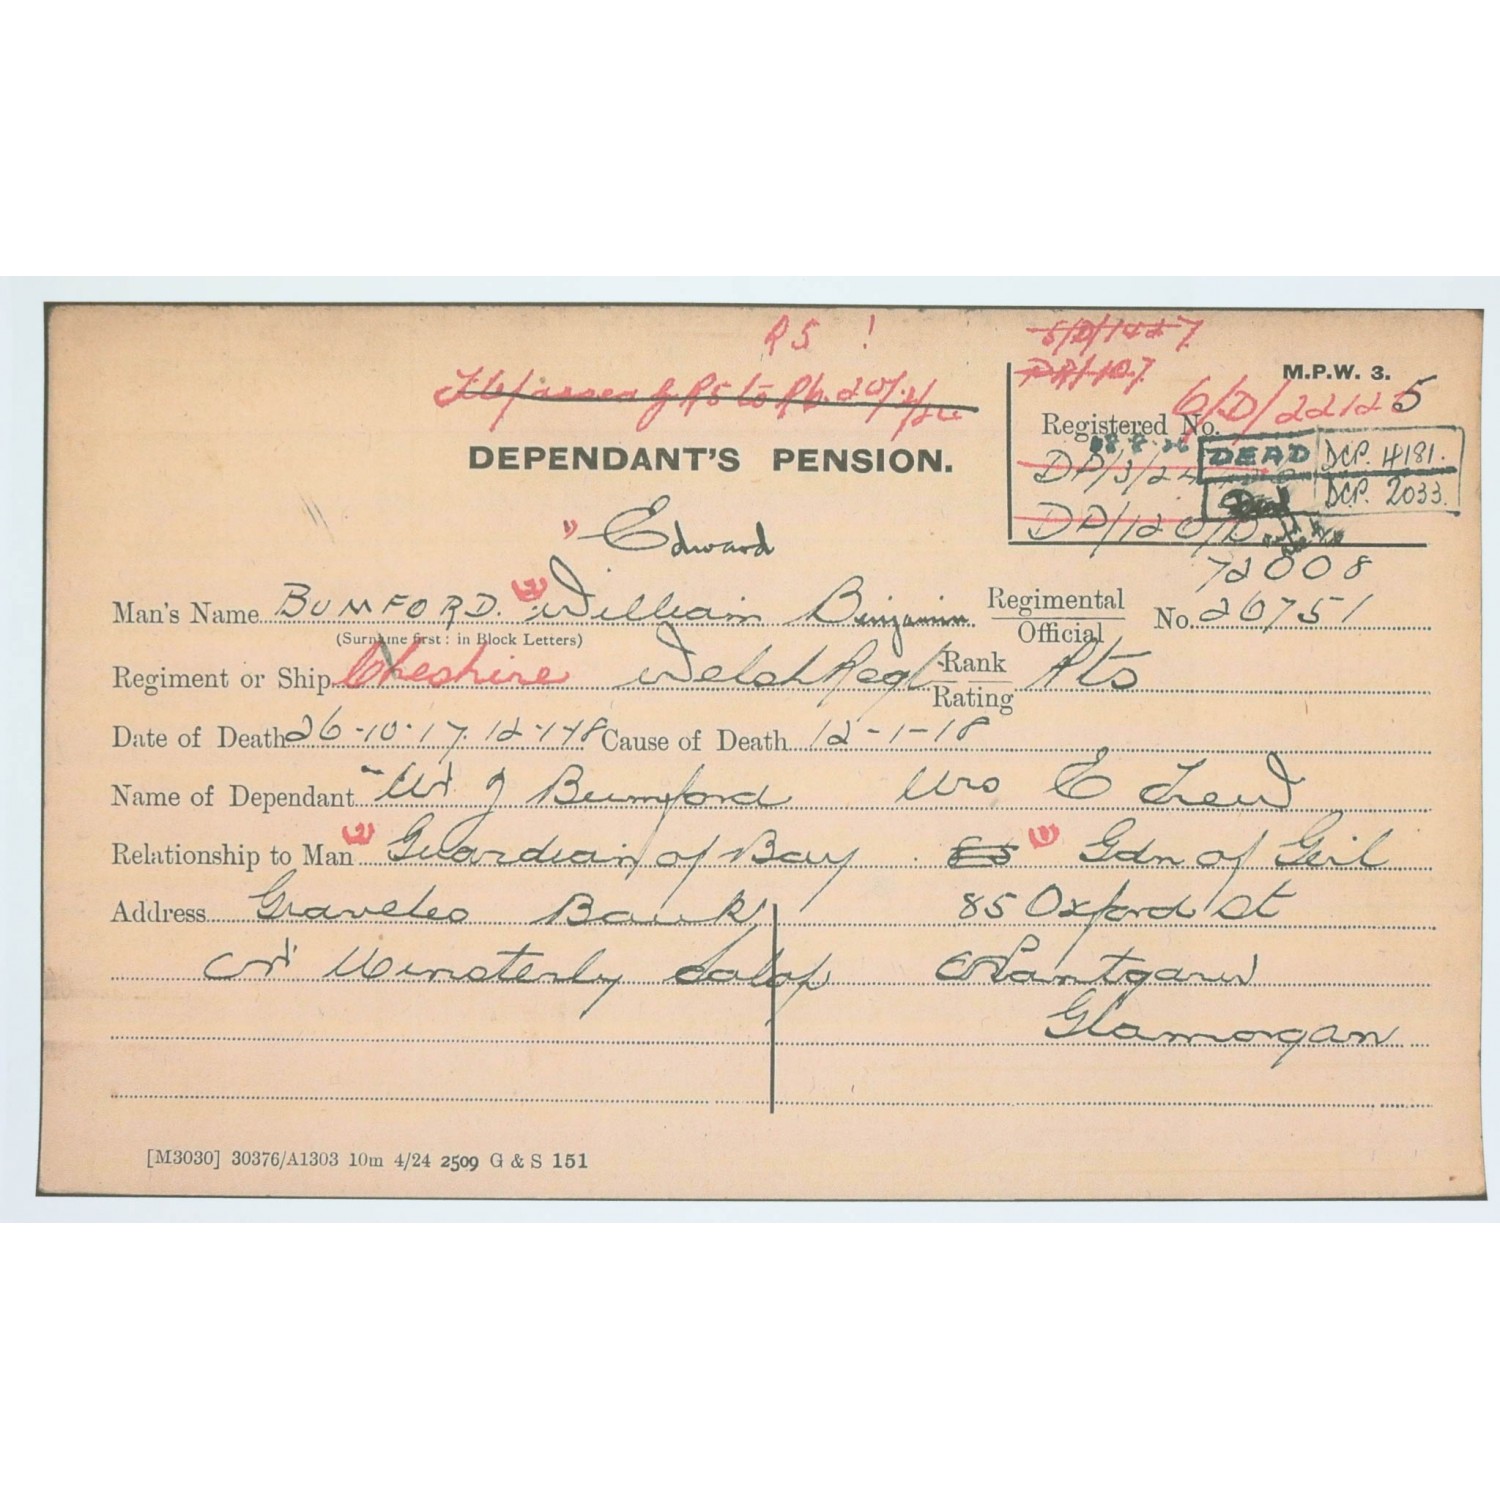 R5 !
5/D/1427
M.P.W. 3.
R5 to R6. 20/
Registered No. 6/D/22125
DEPENDANT'S PENSION.
DEAD DCP. 4181.
Dead DCP. 2033.
DP/120/D
" Edward
72008
Man's Name BUMFORD. (2) William Binjamin Regimental / Official No. 26751
(Surname first: in Block Letters)
Regiment or Ship Cheshire Welsh Regt Rank / Rating Pts
Date of Death 26-10-17. 12-1-18 Cause of Death 12-1-18
Name of Dependant J Bumford Mrs E Trew
Relationship to Man (2) Guardian of Boy. (1) Gdn of Girl
Address Graveles Bank 85 Oxford St
Minsterly Salop Nantgarw
Glamorgan
[M3030] 30376/A1303 10m 4/24 2509 G & S 151